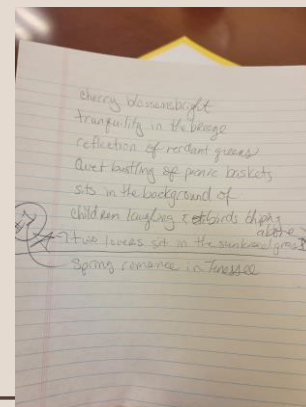 cherry blossomsbright
tranquility in the breeze
reflection of verdant greens
Quet bustling of picnic baskets
sits in the background of
children laughing & birds chips
above
two lovers sit in the sunbaked grass
Spring romance in Tenessee